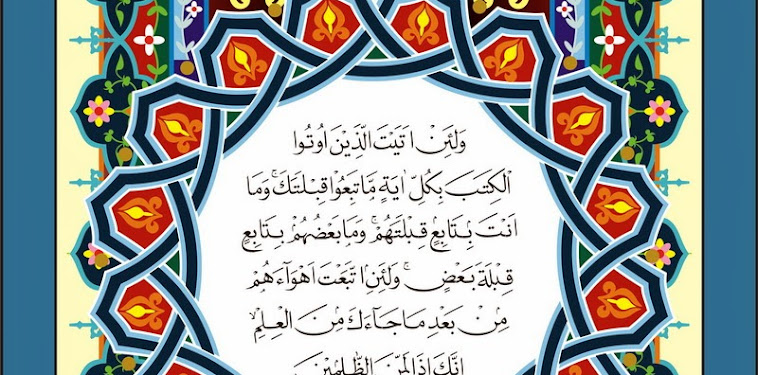 وَلَئِنْ اَتَيْتَ الَّذِيْنَ اُوتُوا
الْكِتٰبَ بِكُلِّ اٰيَةٍ مَّا تَبِعُوْا قِبْلَتَكَ ۚ وَمَا
اَنْتَ بِتَابِعٍ قِبْلَتَهُمْ ۚ وَمَا بَعْضُهُمْ بِتَابِعٍ
قِبْلَةَ بَعْضٍ ۚ وَلَئِنِ اتَّبَعْتَ اَهْوَاۤءَهُمْ
مِنْ بَعْدِ مَا جَاۤءَكَ مِنَ الْعِلْمِ ۙ
اِنَّكَ اِذًا لَّمِنَ الظّٰلِمِيْنَ